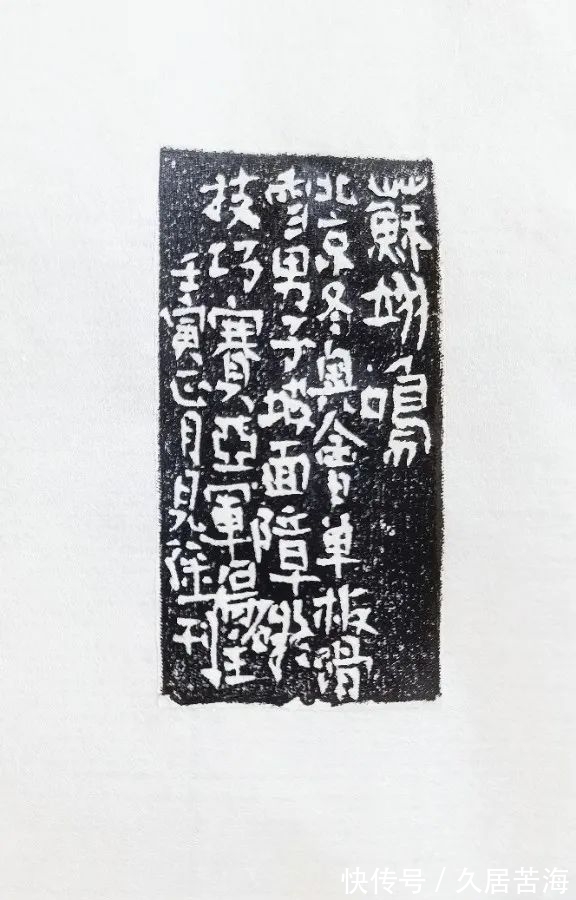 蘇翊鳴
北京冬奥會单板滑
雪男子坡面障礙
技巧賽亞軍得主
壬寅正月見篷刊
快传号 / 久居苦海